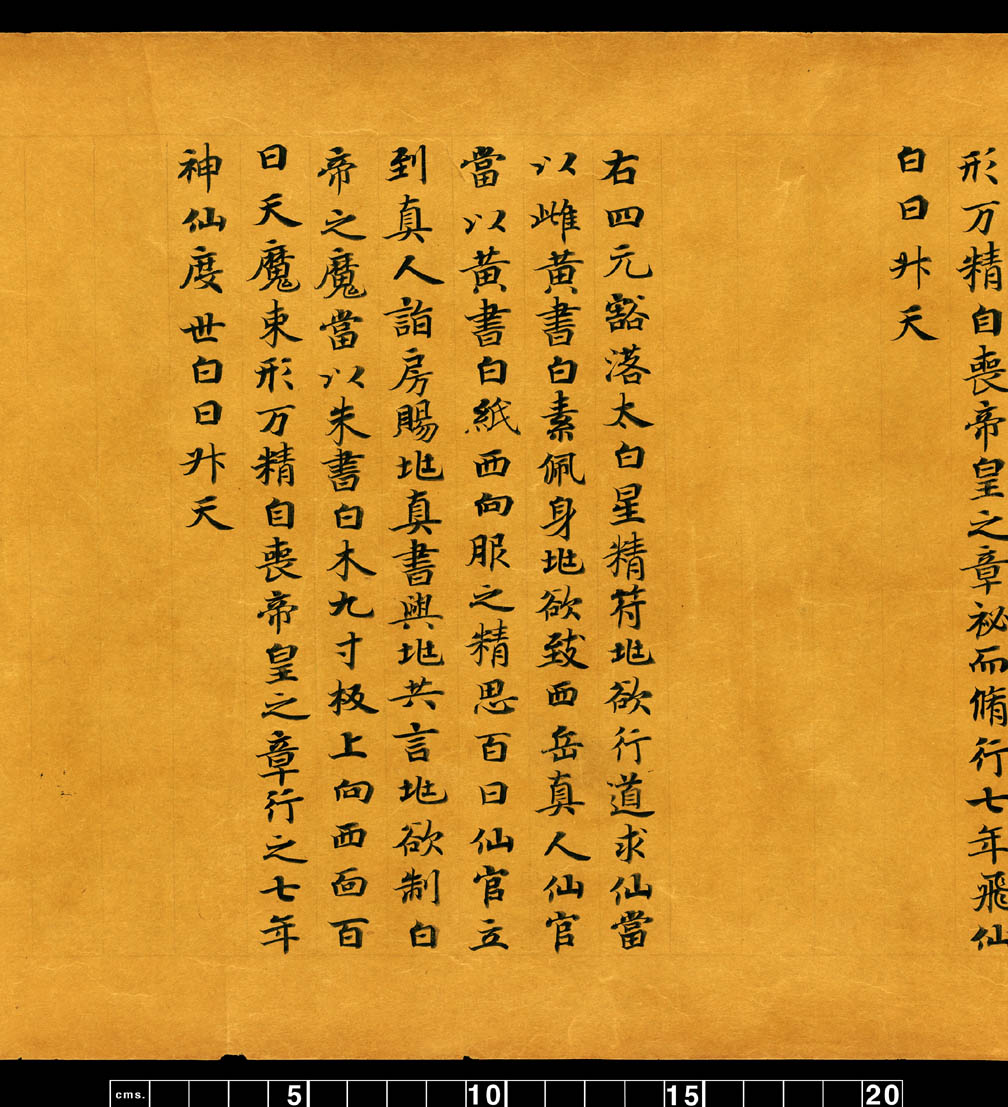 形万精自喪帝皇之章祕而脩行七年飛仙
白日升天
右四元豁落太白星精苻兆欲行道求仙當
以雌黄書白素佩身兆欲致西岳真人仙官
當以黄書白紙西向服之精思百日仙官立
到真人詣房賜兆真書與兆共言兆欲制白
帝之魔當以朱書白木九寸板上向西面百
日天魔束形万精自喪帝皇之章行之七年
神仙度世白日升天
cms. 5 10 15 20